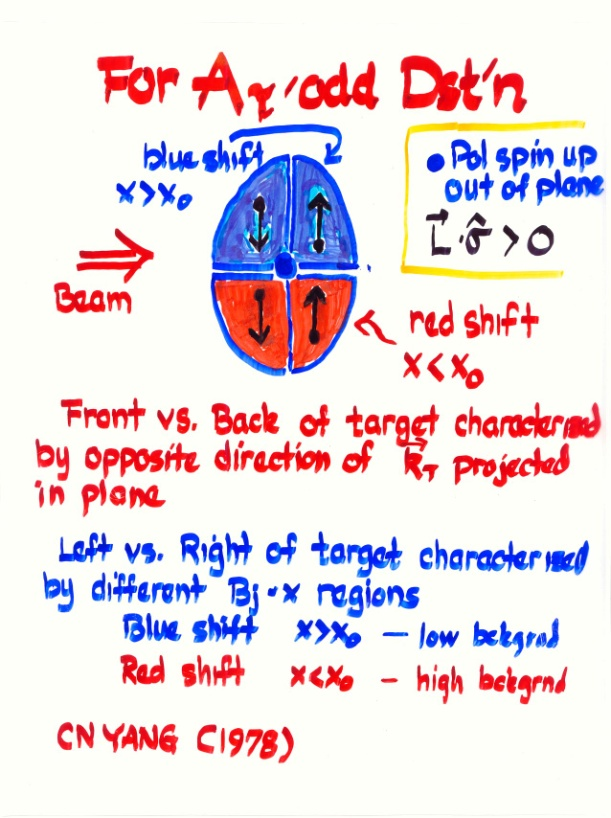 For Aτ-odd Dst'n
blue shift
x > x₀
• Pol spin up
out of plane
L⃗·σ̂ > 0
Beam
red shift
x < x₀
Front vs. Back of target characterized
by opposite direction of k⃗_T projected
in plane
Left vs. Right of target characterized
by different Bj-x regions
Blue shift x>x₀ — low bckgrnd
Red shift x<x₀ – high bckgrnd
CN YANG (1978)